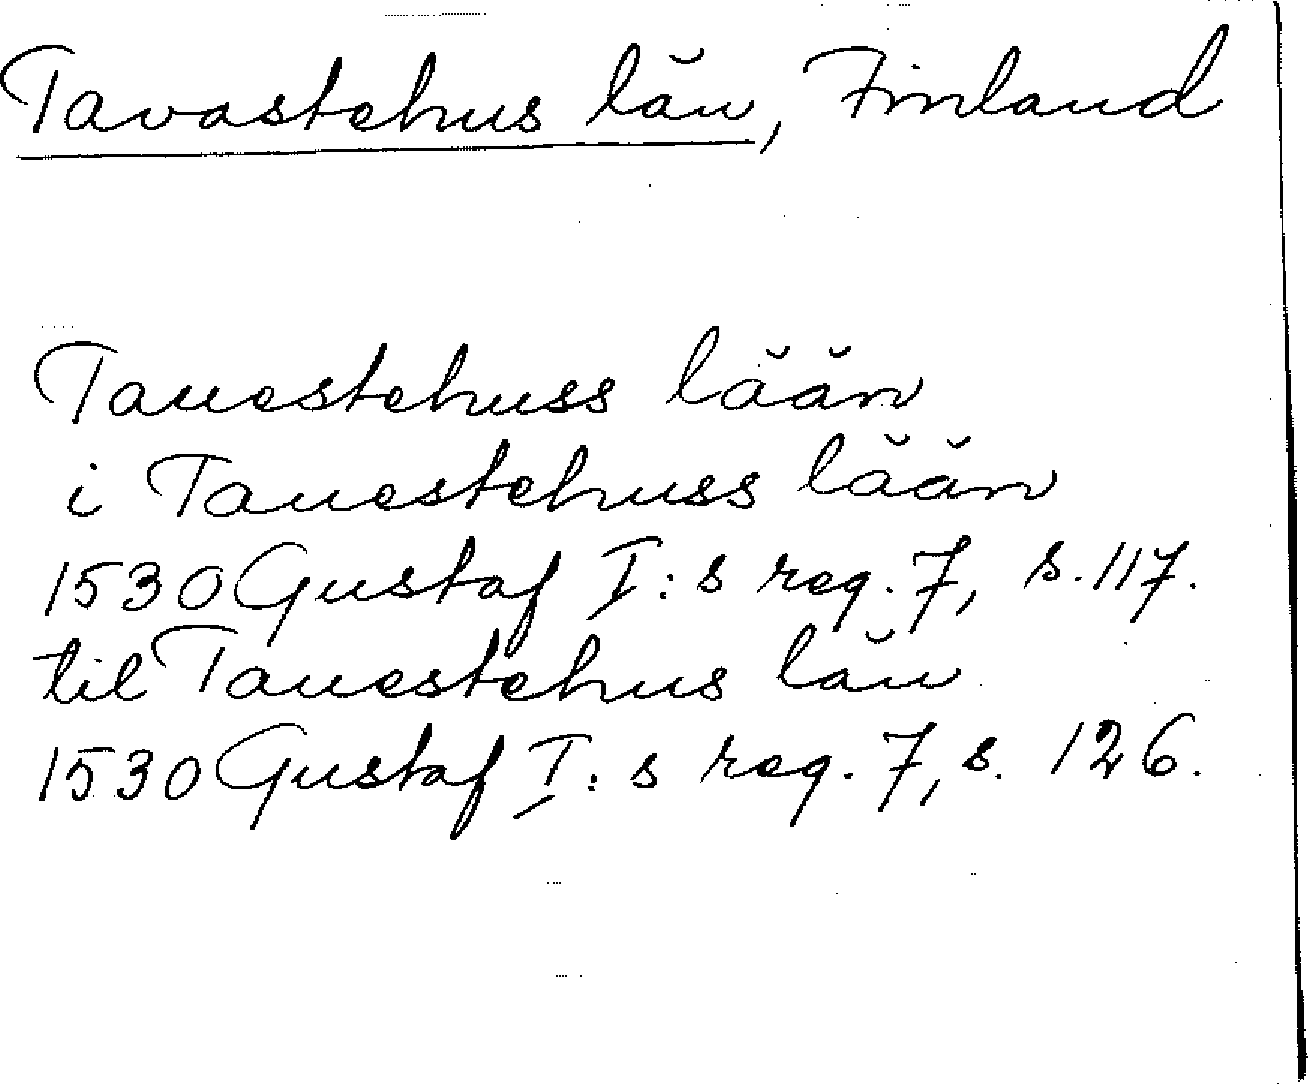 Tavastehus län, Finland
Tauestehuss lään
i Tauestehuss lään
1530 Gustaf I:s reg. 7, s. 117.
til Tauestehus län
1530 Gustaf I:s reg. 7, s. 126.